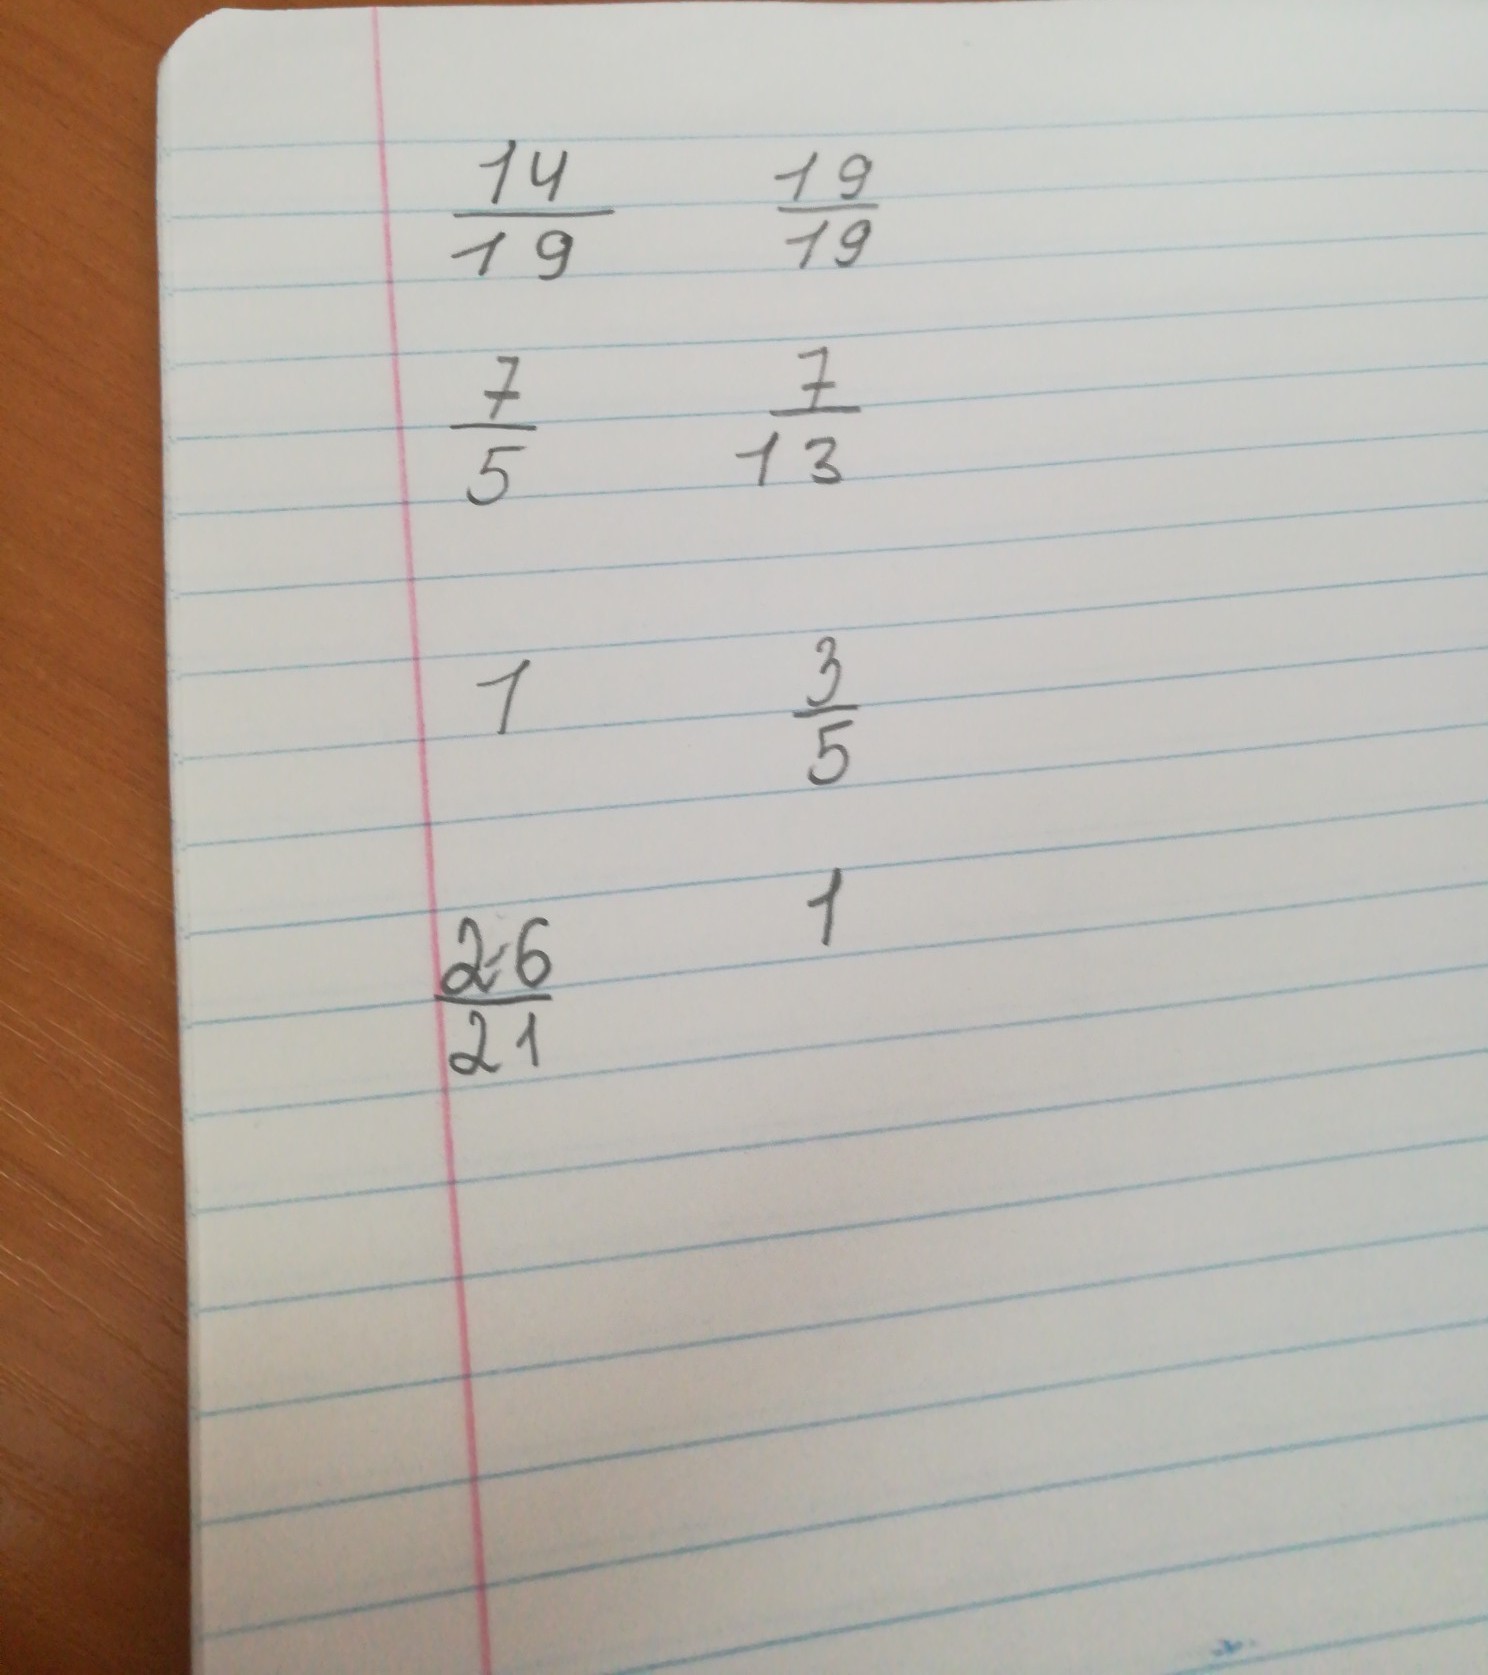 14/19 19/19
7/5 7/13
1 3/5
26/21 1